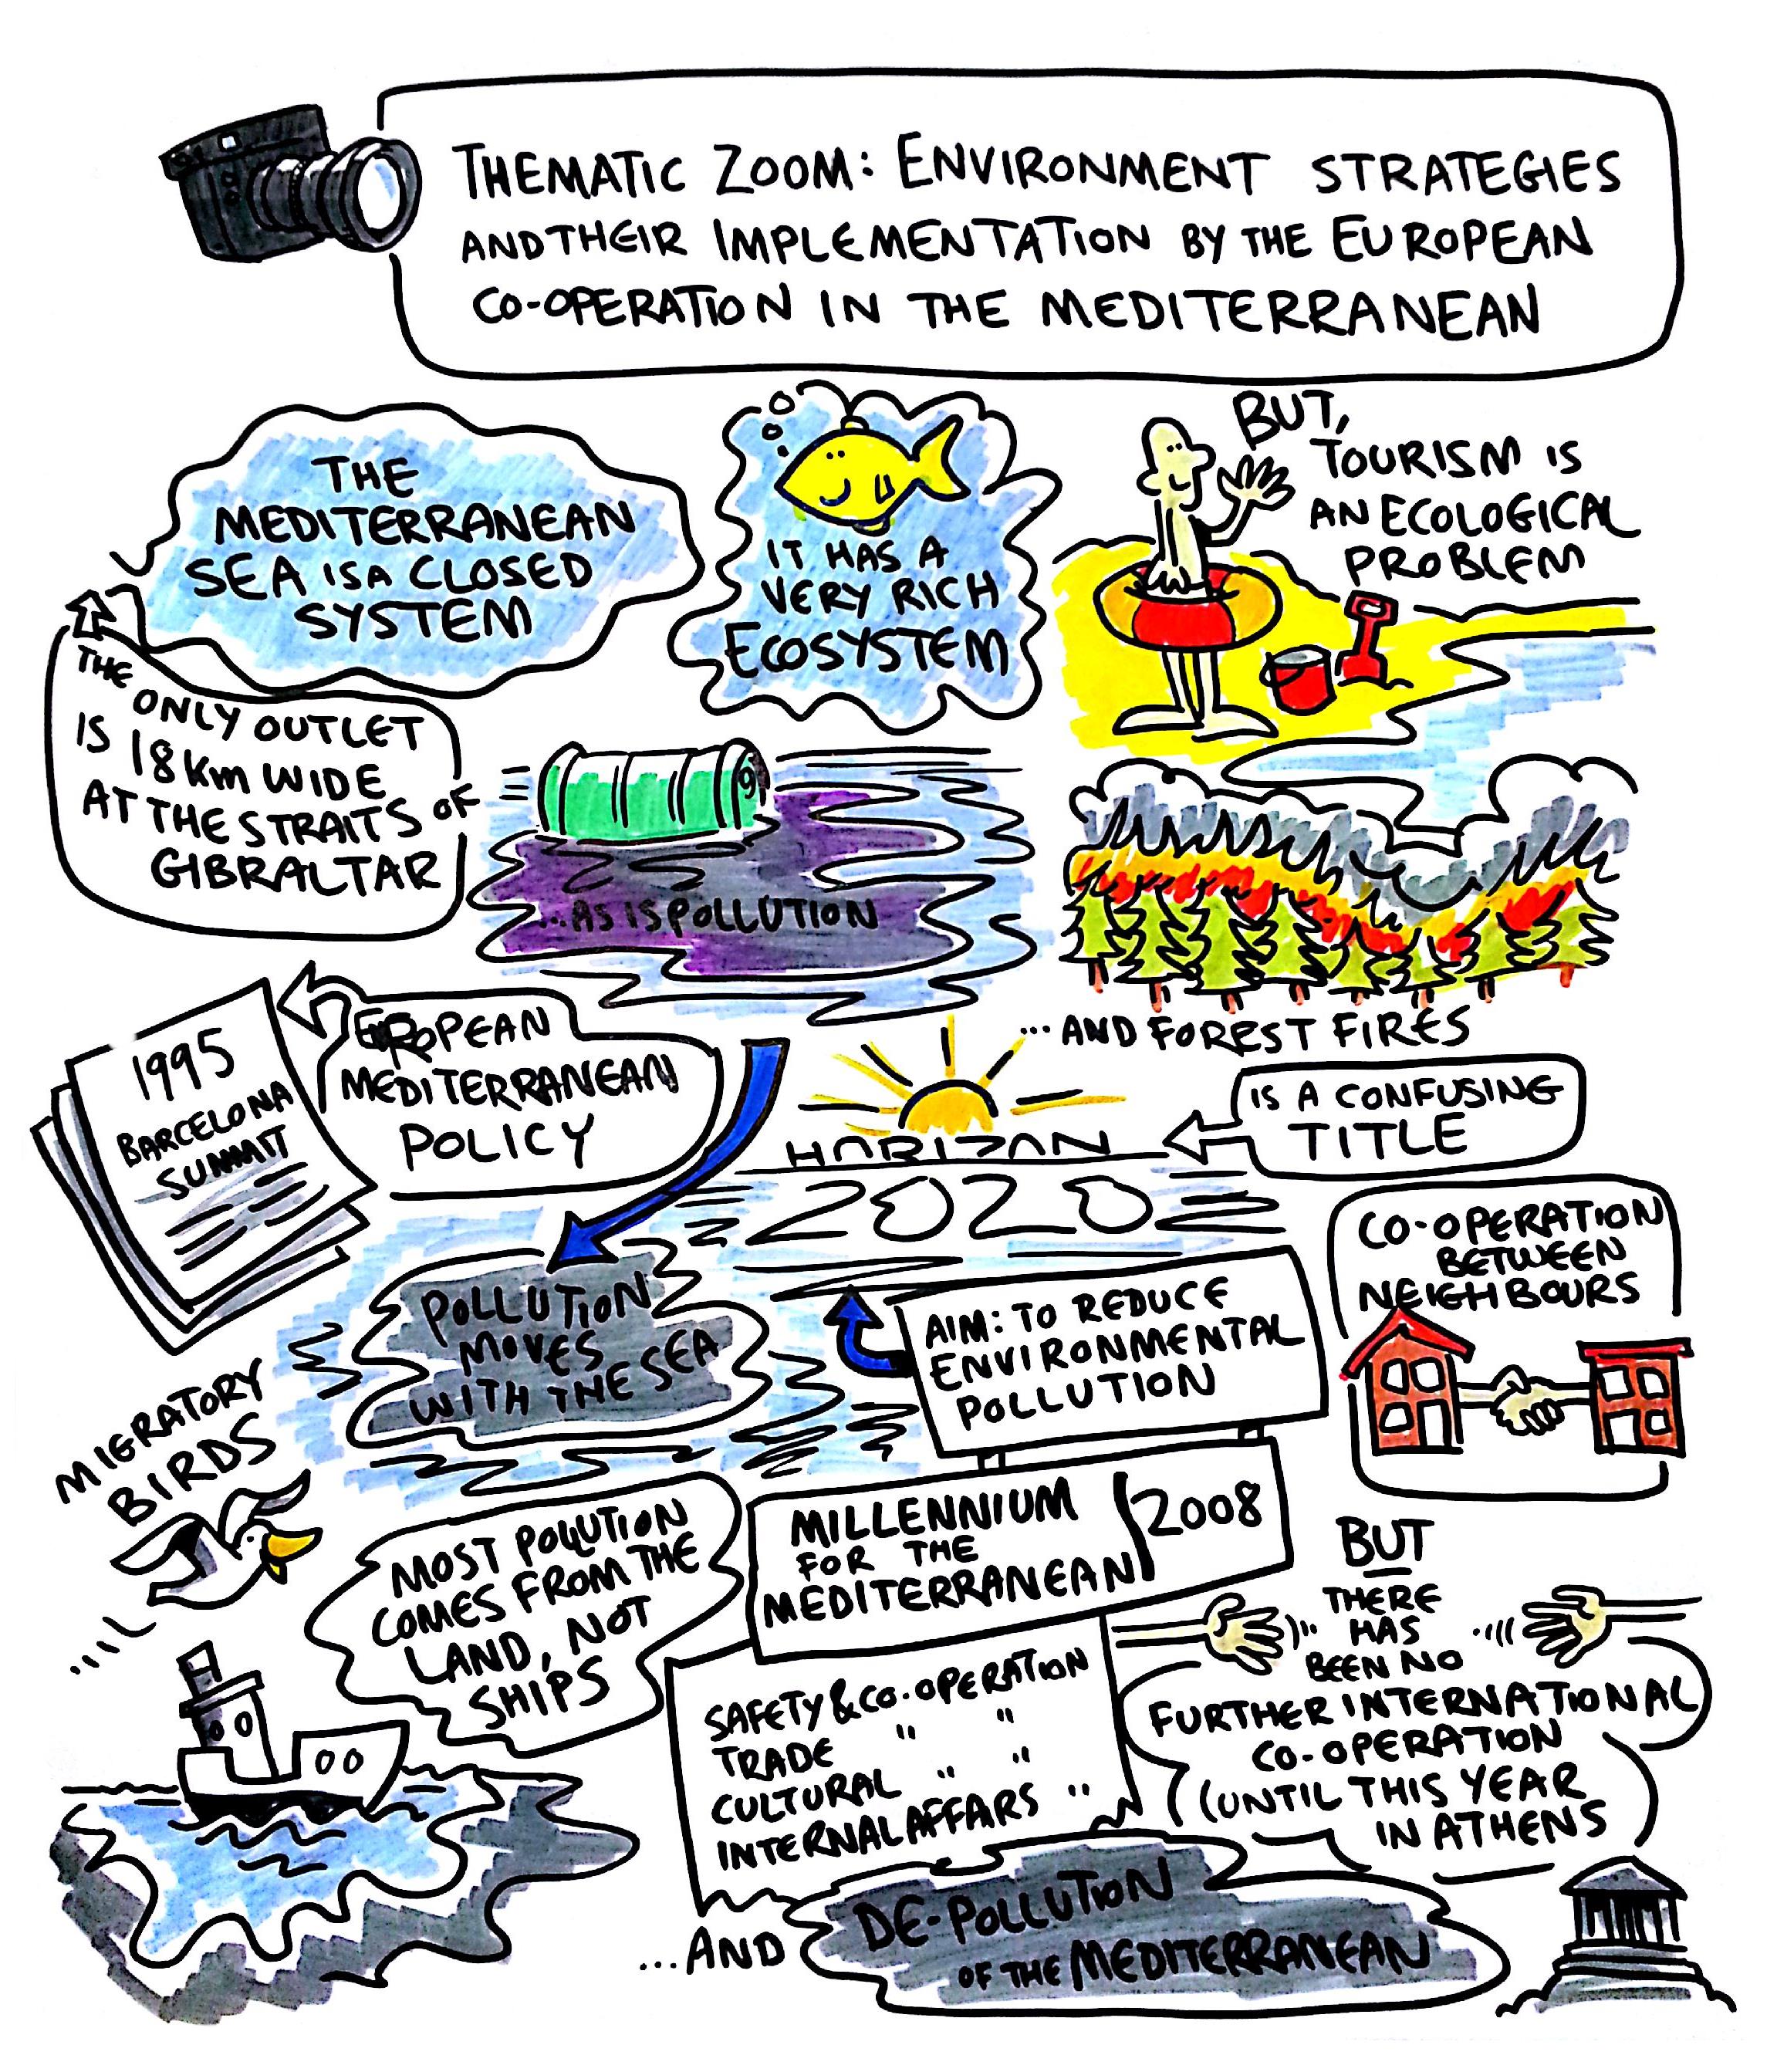 THEMATIC ZOOM: ENVIRONMENT STRATEGIES
AND THEIR IMPLEMENTATION BY THE EUROPEAN
CO-OPERATION IN THE MEDITERRANEAN
THE
MEDITERRANEAN
SEA IS A CLOSED
SYSTEM
IT HAS A
VERY RICH
ECOSYSTEM
BUT,
TOURISM IS
AN ECOLOGICAL
PROBLEM
THE ONLY OUTLET
IS 18 Km WIDE
AT THE STRAITS OF
GIBRALTAR
...AS IS POLLUTION
...AND FOREST FIRES
1995
BARCELONA
SUMMIT
EUROPEAN
MEDITERRANEAN
POLICY
HORIZON
2020
IS A CONFUSING
TITLE
CO-OPERATION
BETWEEN
NEIGHBOURS
POLLUTION
MOVES
WITH THE SEA
AIM: TO REDUCE
ENVIRONMENTAL
POLLUTION
MIGRATORY
BIRDS
MOST POLLUTION
COMES FROM THE
LAND, NOT
SHIPS
MILLENNIUM
FOR THE
MEDITERRANEAN
2008
BUT
THERE
HAS
BEEN NO
FURTHER INTERNATIONAL
CO-OPERATION
(UNTIL THIS YEAR
IN ATHENS
SAFETY & CO-OPERATION
TRADE " "
CULTURAL " "
INTERNAL AFFAIRS "
...AND
DE-POLLUTION
OF THE MEDITERRANEAN